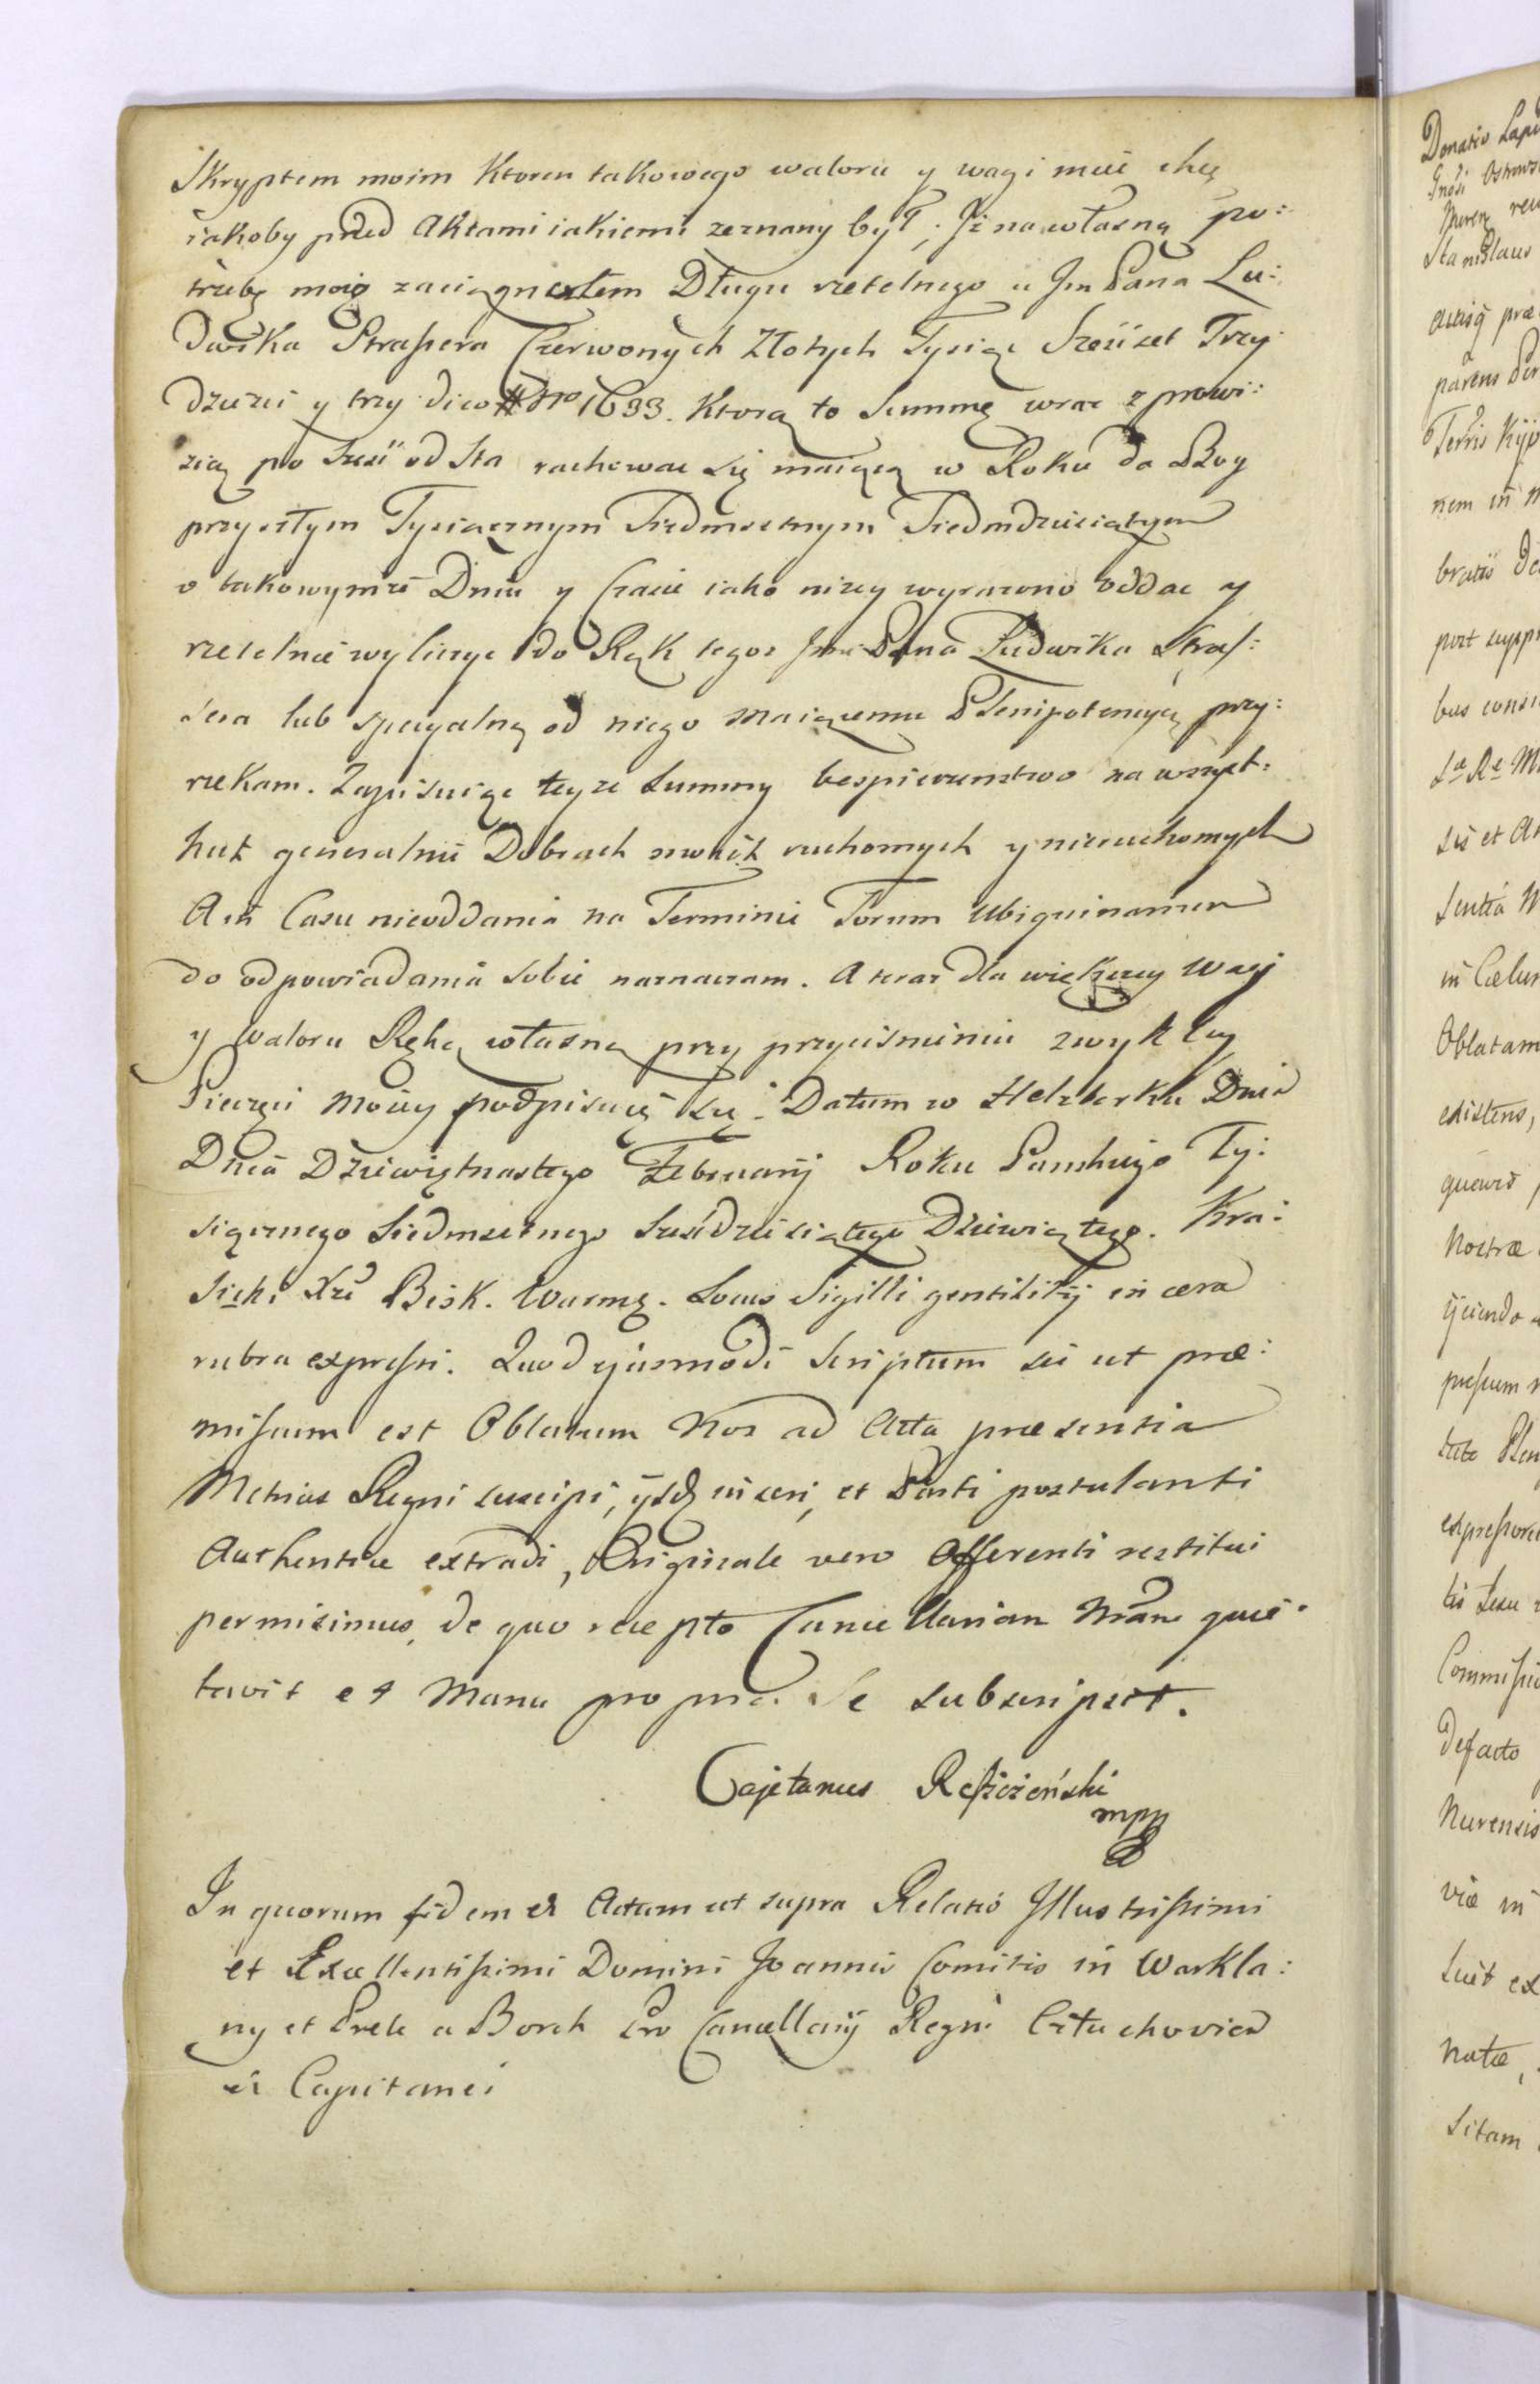 Skryptem moim Ktoren takowego waloru y wagi mieć chcę
iakoby przed Aktami iakiemi zeznany był; Iż na własną po:
trzebę moię zaciągnąłem Długu rzetelnego u Jm Pana Lu:
dwika Strassera Czerwonych Złotych Tysiąc Sześćset Trzy
dzieści y trzy dico # Nro 1633. Ktorą to Summę wraz z prowi:
zią po sześć od Sta rachować się maiącą w Roku da Bog
przyszłym Tysiącznym Siedmsetnym Siedmdziesiątym
o takowymże Dniu y Czasie iako niżey wyrażono oddać y
rzetelnie wyliczyć do Rąk tegoż Jmci Pana Ludwika Stras:
sera lub specyalną od niego maiącemu Plenipotencyą przy:
rzekam. Zapisuiąc teyże Summy bespieczenstwo na wszyst:
kich generalnie Dobrach moich ruchomych y nieruchomych
A in Casu nieoddania na Terminie Forum Ubiquinarium
do odpowiadania sobie naznaczam. A teraz dla większey wagi
y waloru Ręką własną przy przyciśnieniu zwykłey
Pieczęci moiey podpisuię się. Datum w Helzberku Dnia
Dnia Dziewiętnastego Februarij Roku Panskiego Ty:
siącznego Siedmsetnego Sześćdziesiątego Dziewiątego. Kra:
sicki Xże Bisk. Warmę. Locus Sigilli gentilitij in cera
rubra expressi. Quod ejusmodi Scriptum sic ut præ:
missum est Oblatum Nos ad Acta præsentia
Metrices Regni suscipi, ijsdem inseri, et Parti postulanti
Authentice extradi, Originale vero Offerenti restitui
permisimus, de quo recepto Cancellariam Nram quie:
tavit et Manu propria Se subscripsit.
Cajetanus Rościszewski
mpp
In quorum fidem et Actum ut supra Relatio Illustrissimi
et Excellentissimi Domini Joannis Comitis in Warkla:
ny et Prele a Borch Pro Cancellarij Regni
Capitanei
Donatio
Stanislaus
parens
Terris
nem in
post
bus
Sæ Ræ
sis et
in
Oblatam
existens,
Nostræ
tate
Defacto
Nurensis
viæ in
natæ,
sitam